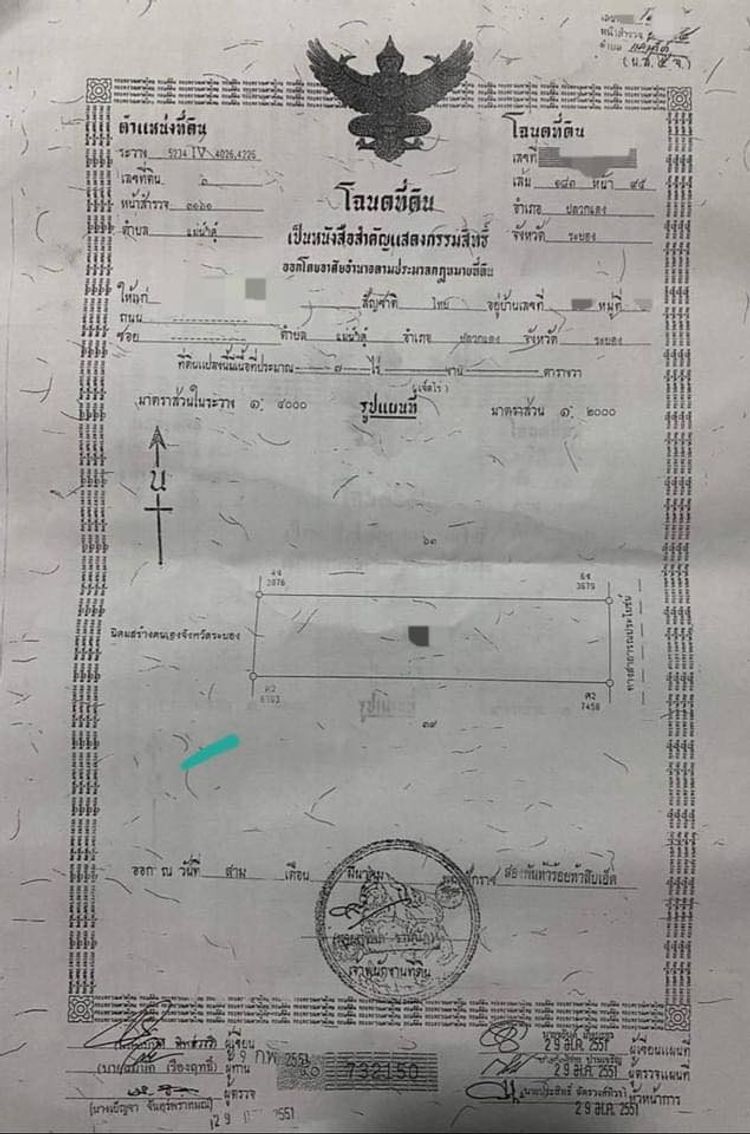 หน้าสำรวจ
ตำบล แม่น้ำคู้
(น.ส. ๔ จ.)
ตำแหน่งที่ดิน
ระวาง 5234 IV 4026,4226
เลขที่ดิน
หน้าสำรวจ ๓๑๖๐
ตำบล แม่น้ำคู้
โฉนดที่ดิน
เลขที่
เล่ม ๑๘๓ หน้า ๙๕
อำเภอ ปลวกแดง
จังหวัด ระยอง
โฉนดที่ดิน
เป็นหนังสือสำคัญแสดงกรรมสิทธิ์
ออกโดยอาศัยอำนาจตามประมวลกฎหมายที่ดิน
ให้แก่ สัญชาติ ไทย อยู่บ้านเลขที่ หมู่ที่
ถนน
ซอย ตำบล แม่น้ำคู้ อำเภอ ปลวกแดง จังหวัด ระยอง
ที่ดินแปลงนี้มีเนื้อที่ประมาณ ๗ ไร่ งาน ตารางวา
(เจ็ดไร่)
มาตราส่วนในระวาง ๑: ๔๐๐๐ รูปแผนที่ มาตราส่วน ๑: ๒๐๐๐
น
๖๓
2876
3679
นิคมสร้างตนเองจังหวัดระยอง
ทางสาธารณประโยชน์
ค2
ค2
7458
๓๙
ออก ณ วันที่ สาม เดือน มีนาคม พุทธศักราช สองพันห้าร้อยห้าสิบเอ็ด
เจ้าพนักงานที่ดิน
ผู้เขียน
ผู้ทาน
ผู้ตรวจ
732150
29 ม.ค. 2551 ผู้เขียนแผนที่
29 ม.ค. 2551 ผู้ตรวจแผนที่
หัวหน้าการ
29 ม.ค. 2551